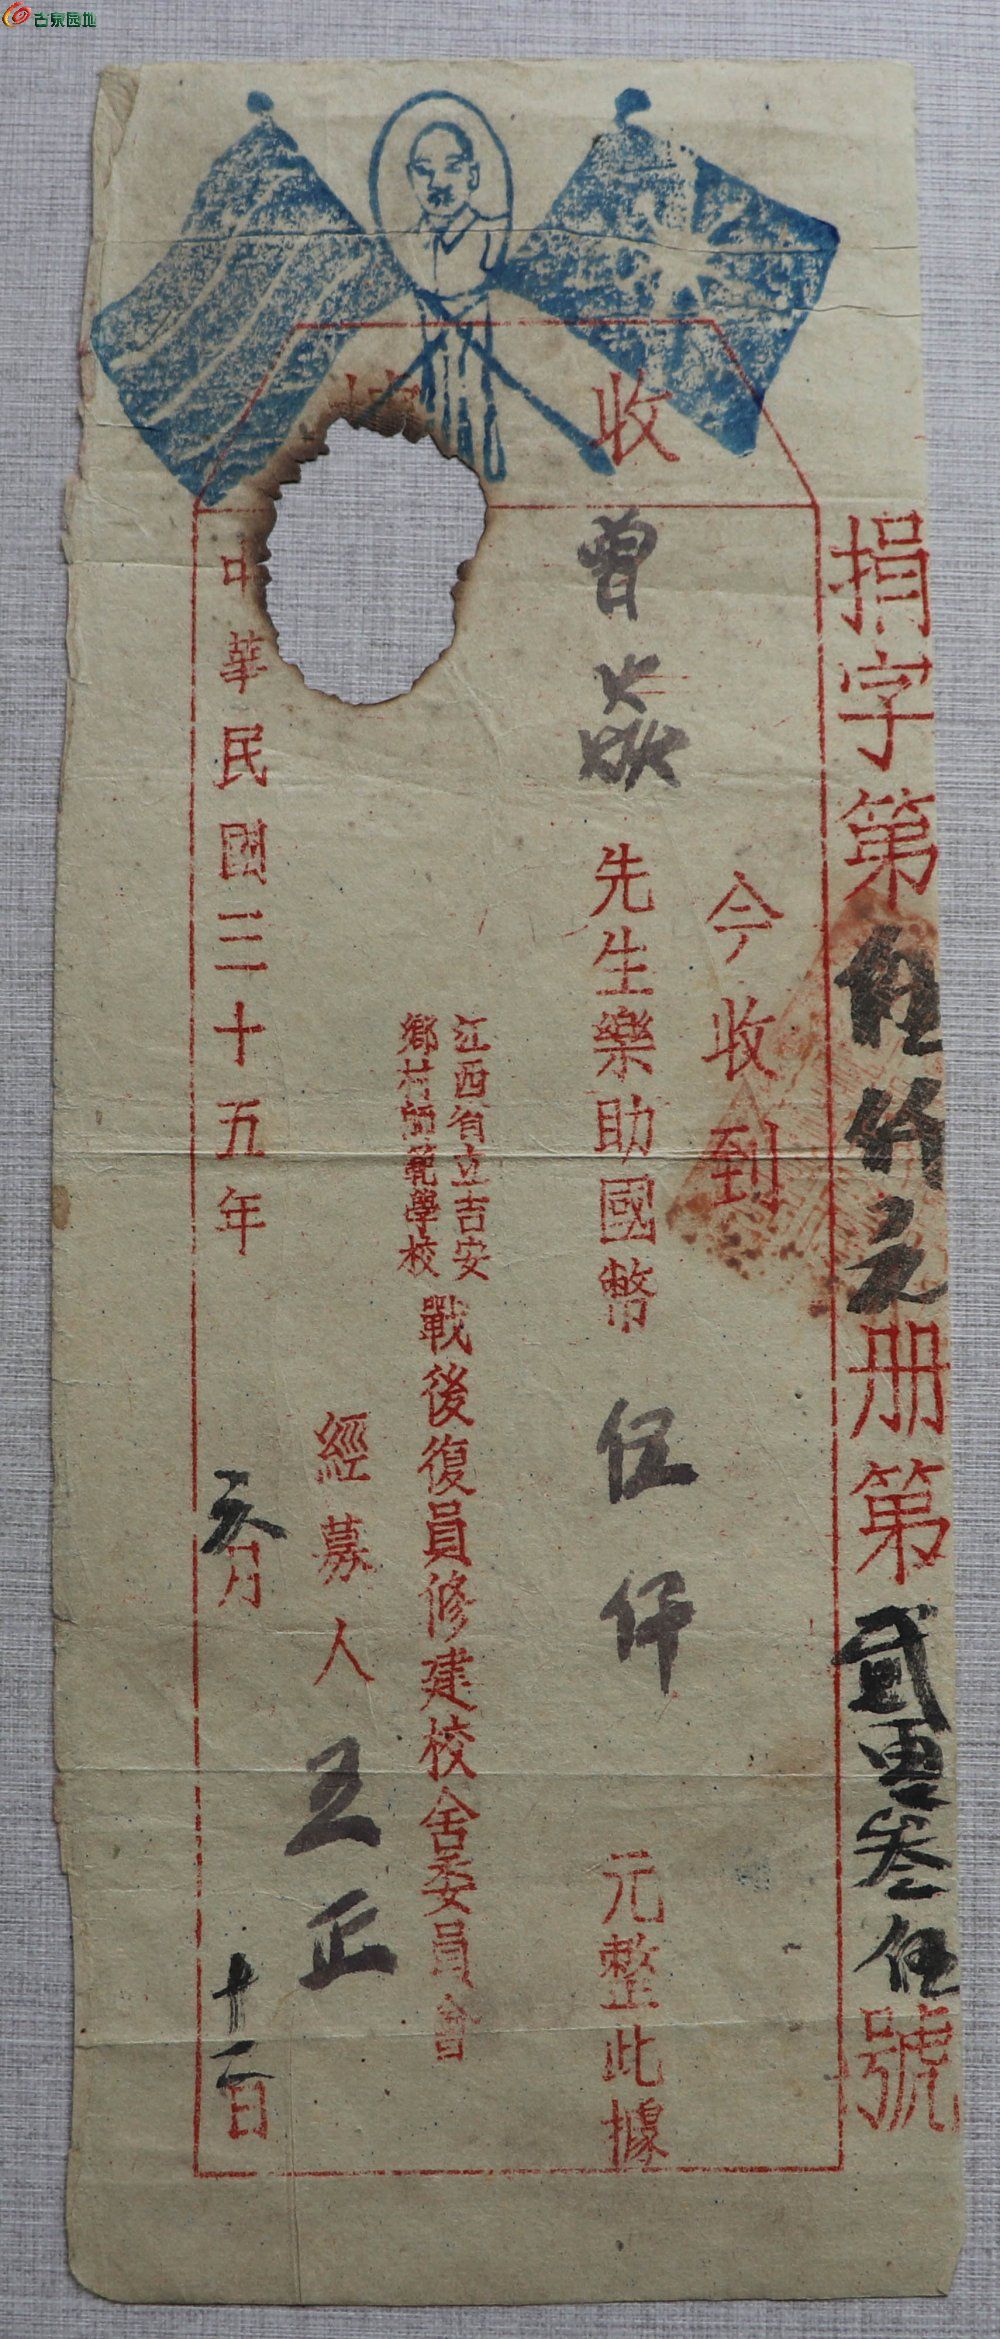 古泉园地
捐字第伍仟元册第贰零叁伍號
收據
今收到
曾焱先生樂助國幣伍仟元整此據
江西省立吉安
鄉村師範學校
戰後復員修建校舍委員會
經募人王正
中華民國三十五年元月十二日